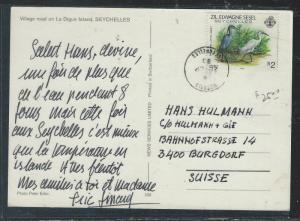 Village road on La Digue Island, SEYCHELLES
Salut Hans, devine,
une fois de plus que
de l'eau pendant 8
jours mais cette fois
aux Seychelles c'est mieux
que la température en
islande. A très bientôt
Mes amitiés à toi et madame
Eric
Photo Peter Eder
NEWS SERVICES LIMITED
Printed in Switzerland
ZIL ELWAGNE SESEL
SEYCHELLES
R2
HANS HULMANN
C/O HULMANN + CIE
BAHNHOFSTRASSE 14
3400 BURGDORF
SUISSE